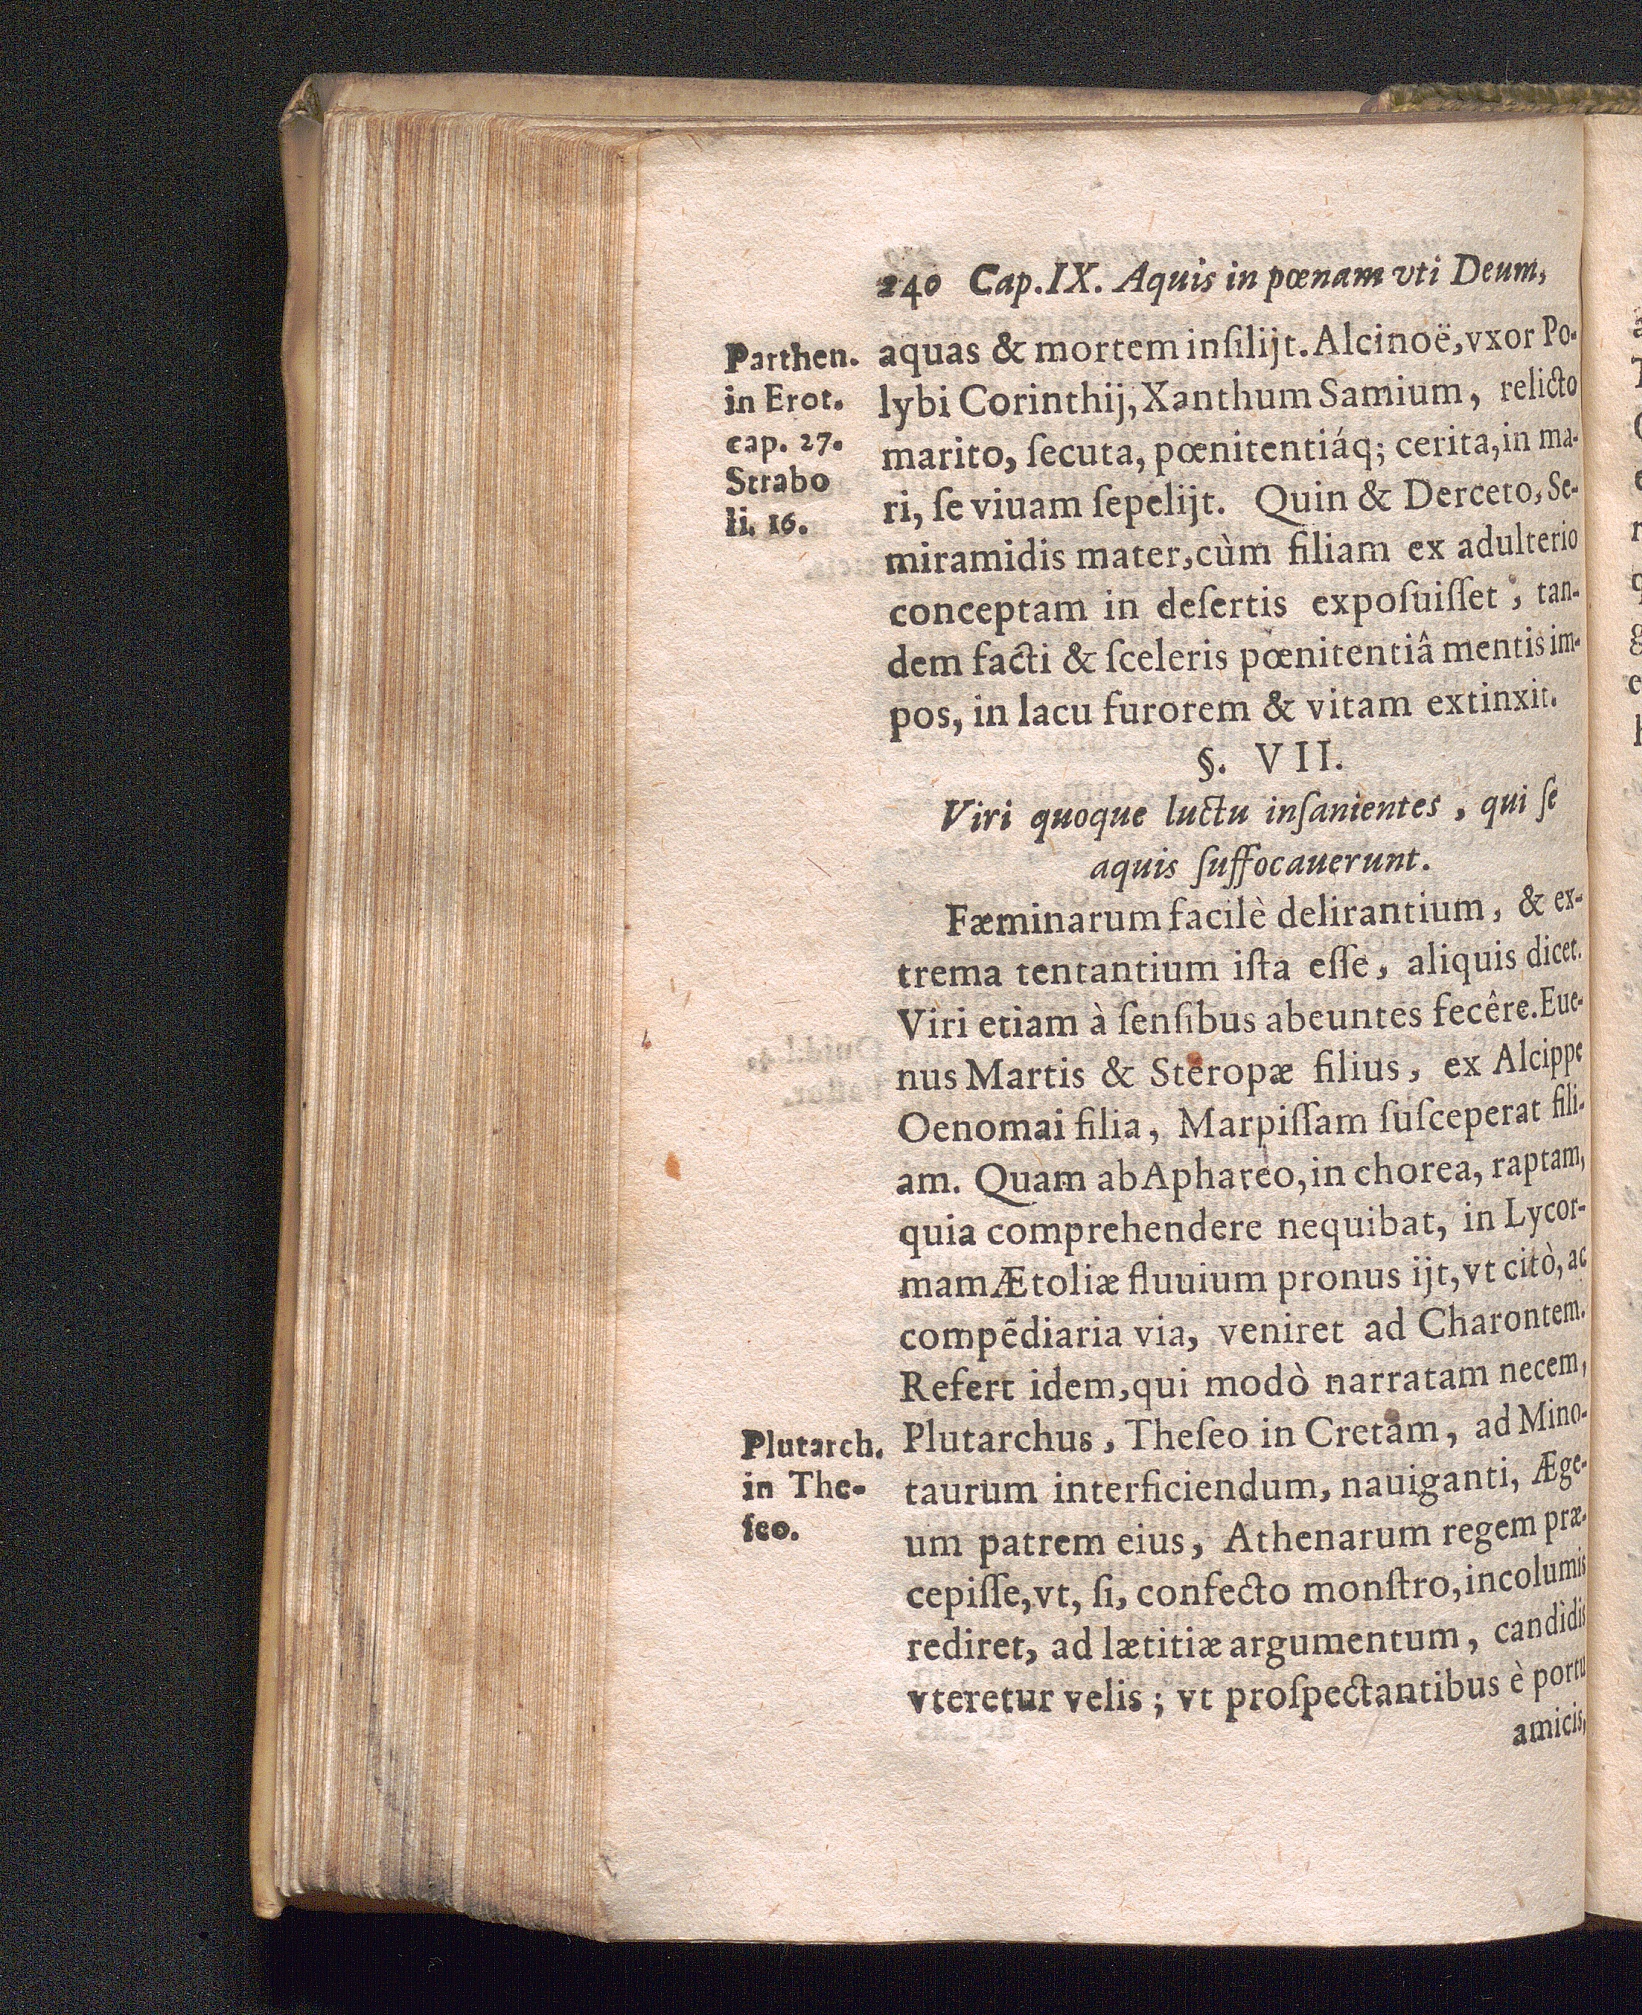 240 Cap.IX. Aquis in pœnam vti Deum,
Parthen.
in Erot.
cap. 27.
Strabo
li. 16.
aquas & mortem inſilijt. Alcinoë, vxor Po-
lybi Corinthij, Xanthum Samium, relicto
marito, ſecuta, pœnitentiáq; cerita, in ma-
ri, ſe viuam ſepelijt. Quin & Derceto, Se-
miramidis mater, cùm filiam ex adulterio
conceptam in deſertis expoſuiſſet, tan-
dem facti & ſceleris pœnitentiâ mentis im-
pos, in lacu furorem & vitam extinxit.
§. VII.
Viri quoque luctu inſanientes, qui ſe
aquis ſuffocauerunt.
Fæminarum facilè delirantium, & ex-
trema tentantium iſta eſſe, aliquis dicet.
Viri etiam à ſenſibus abeuntes fecêre. Eue-
nus Martis & Steropæ filius, ex Alcippe
Oenomai filia, Marpiſſam ſuſceperat fili-
am. Quam ab Aphareo, in chorea, raptam,
quia comprehendere nequibat, in Lycor-
mam Ætoliæ fluuium pronus ijt, vt citò, ac
compẽdiaria via, veniret ad Charontem.
Refert idem, qui modò narratam necem,
Plutarch.
in The-
ſeo.
Plutarchus, Theſeo in Cretam, ad Mino-
taurum interficiendum, nauiganti, Æge-
um patrem eius, Athenarum regem præ-
cepiſſe, vt, ſi, confecto monſtro, incolumis
rediret, ad lætitiæ argumentum, candidis
vteretur velis; vt proſpectantibus è portu
amicis,